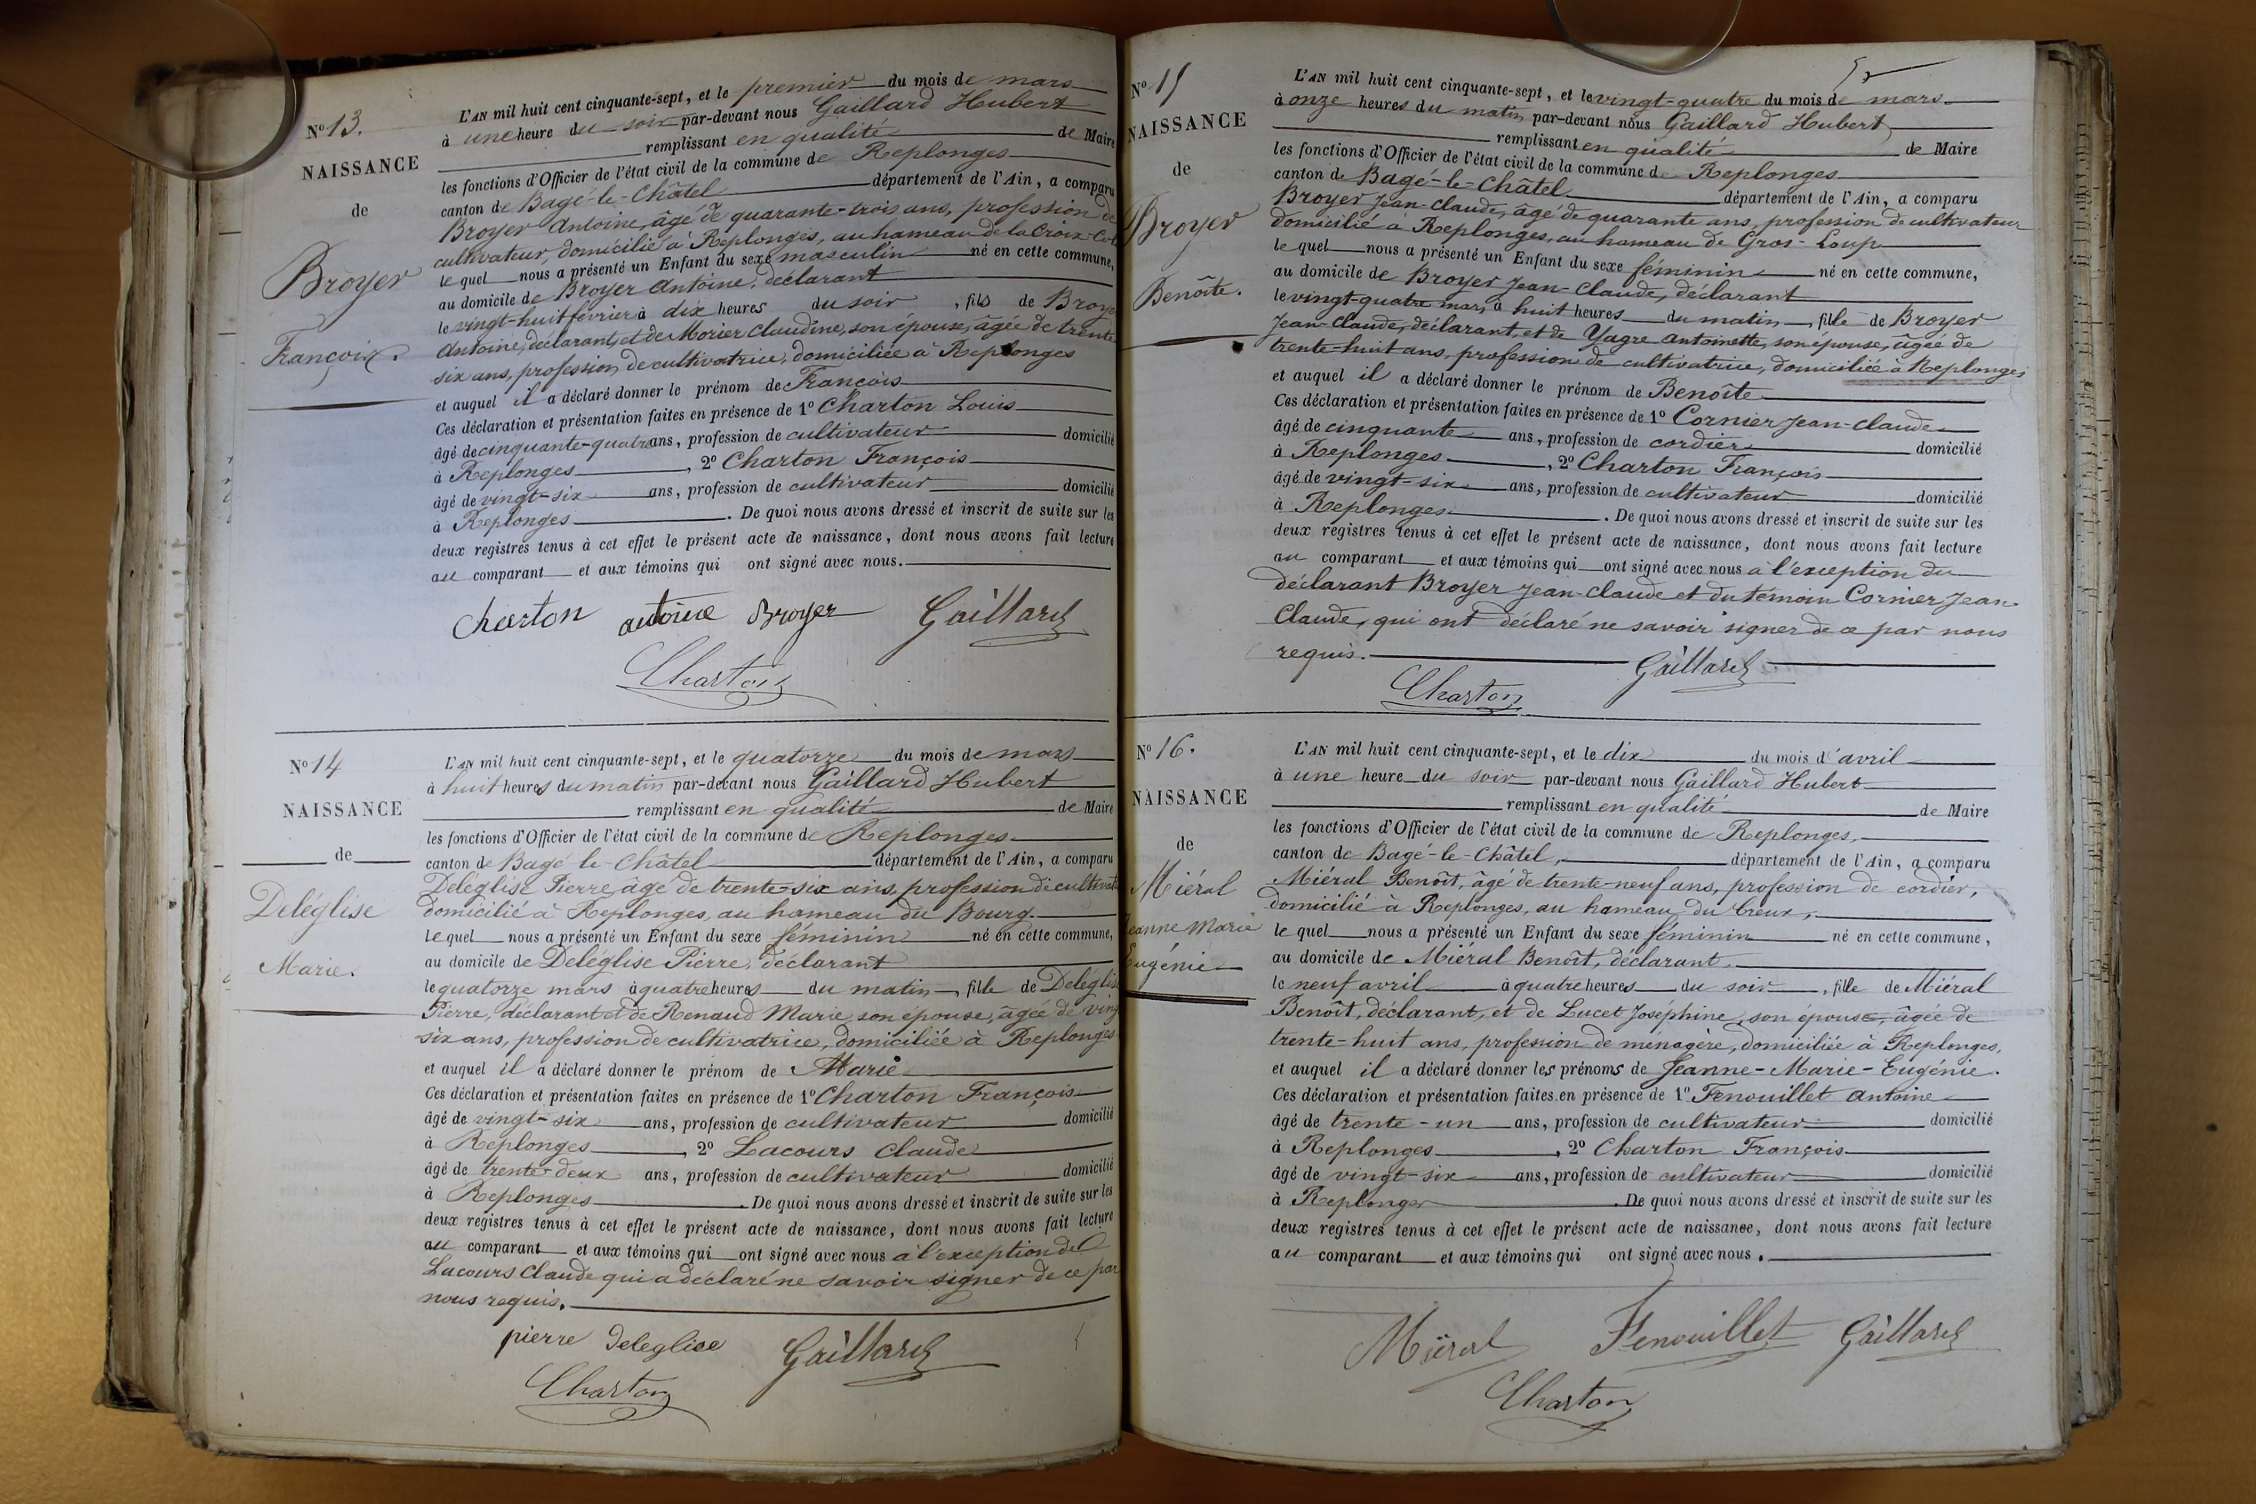 N° 13.
NAISSANCE
de
Broyer
François.
L'AN mil huit cent cinquante-sept, et le premier du mois de mars
à une heure du soir par-devant nous Gaillard Hubert
remplissant en qualité de Maire
les fonctions d'Officier de l'état civil de la commune de Replonges
canton de Bagé-le-Châtel département de l'Ain, a comparu
Broyer Antoine, âgé de quarante-trois ans, profession de
cultivateur, domicilié à Replonges, au hameau de la Croix
le quel nous a présenté un Enfant du sexe masculin né en cette commune,
au domicile de Broyer Antoine, déclarant
le vingt-huit février à dix heures du soir, fils de Broye
Antoine, déclarant, et de Morier Claudine, son épouse, âgée de trente
six ans, profession de cultivatrice, domiciliée à Replonges
et auquel il a déclaré donner le prénom de François
Ces déclaration et présentation faites en présence de 1° Charton Louis
âgé de cinquante-quatre ans, profession de cultivateur domicilié
à Replonges, 2° Charton François
âgé de vingt-six ans, profession de cultivateur domicilié
à Replonges. De quoi nous avons dressé et inscrit de suite sur les
deux registres tenus à cet effet le présent acte de naissance, dont nous avons fait lecture
au comparant et aux témoins qui ont signé avec nous.
charton antoine Broyer Gaillard
Charton
N° 14
NAISSANCE
de
Deléglise
Marie.
L'AN mil huit cent cinquante-sept, et le quatorze du mois de mars
à huit heures du matin par-devant nous Gaillard Hubert
remplissant en qualité de Maire
les fonctions d'Officier de l'état civil de la commune de Replonges
canton de Bagé-le-Châtel département de l'Ain, a comparu
Deléglise Pierre, âgé de trente-six ans, profession de cultivat
domicilié à Replonges, au hameau du Bourg.
le quel nous a présenté un Enfant du sexe féminin né en cette commune,
au domicile de Deléglise Pierre, déclarant
le quatorze mars à quatre heures du matin, fille de Deléglis
Pierre, déclarant et de Renaud Marie, son épouse, âgée de ving
six ans, profession de cultivatrice, domiciliée à Replonges
et auquel il a déclaré donner le prénom de Marie
Ces déclaration et présentation faites en présence de 1° Charton François
âgé de vingt-six ans, profession de cultivateur domicilié
à Replonges, 2° Lacours Claude
âgé de trente-deux ans, profession de cultivateur domicilié
à Replonges. De quoi nous avons dressé et inscrit de suite sur les
deux registres tenus à cet effet le présent acte de naissance, dont nous avons fait lecture
au comparant et aux témoins qui ont signé avec nous à l'exception de
Lacours Claude qui a déclaré ne savoir signer de ce par
nous requis.
pierre deleglise Gaillard
Charton
N° 15
NAISSANCE
de
Broyer
Benoîte.
L'AN mil huit cent cinquante-sept, et le vingt-quatre du mois de mars
à onze heures du matin par-devant nous Gaillard Hubert,
remplissant en qualité de Maire
les fonctions d'Officier de l'état civil de la commune de Replonges
canton de Bagé-le-Châtel département de l'Ain, a comparu
Broyer Jean-Claude, âgé de quarante ans, profession de cultivateur
domicilié à Replonges, au hameau de Gros-Loup
le quel nous a présenté un Enfant du sexe féminin né en cette commune,
au domicile de Broyer Jean-Claude, déclarant
le vingt-quatre mars à huit heures du matin, fille de Broyer
Jean-Claude, déclarant, et de Yagre Antoinette, son épouse, âgée de
trente-huit ans, profession de cultivatrice, domiciliée à Replonges
et auquel il a déclaré donner le prénom de Benoîte
Ces déclaration et présentation faites en présence de 1° Cornier Jean-Claude
âgé de cinquante ans, profession de cordier domicilié
à Replonges, 2° Charton François
âgé de vingt-six ans, profession de cultivateur domicilié
à Replonges. De quoi nous avons dressé et inscrit de suite sur les
deux registres tenus à cet effet le présent acte de naissance, dont nous avons fait lecture
au comparant et aux témoins qui ont signé avec nous à l'exception du
déclarant Broyer Jean-Claude et du témoin Cornier Jean-
Claude, qui ont déclaré ne savoir signer de ce par nous
requis. Gaillard
Charton
N° 16.
NAISSANCE
de
Miéral
Jeanne Marie
Eugénie
L'AN mil huit cent cinquante-sept, et le dix du mois d'avril
à une heure du soir par-devant nous Gaillard Hubert
remplissant en qualité de Maire
les fonctions d'Officier de l'état civil de la commune de Replonges,
canton de Bagé-le-Châtel, département de l'Ain, a comparu
Miéral Benoît, âgé de trente-neuf ans, profession de cordier,
domicilié à Replonges, au hameau du Creux,
le quel nous a présenté un Enfant du sexe féminin né en cette commune,
au domicile de Miéral Benoît, déclarant
le neuf avril à quatre heures du soir, fille de Miéral
Benoît, déclarant, et de Lucet Joséphine, son épouse, âgée de
trente-huit ans, profession de ménagère, domiciliée à Replonges,
et auquel il a déclaré donner les prénoms de Jeanne-Marie-Eugénie.
Ces déclaration et présentation faites en présence de 1° Fenouillet Antoine
âgé de trente-un ans, profession de cultivateur domicilié
à Replonges, 2° Charton François
âgé de vingt-six ans, profession de cultivateur domicilié
à Replonges. De quoi nous avons dressé et inscrit de suite sur les
deux registres tenus à cet effet le présent acte de naissance, dont nous avons fait lecture
au comparant et aux témoins qui ont signé avec nous.
Miéral Fenouillet Gaillard
Charton